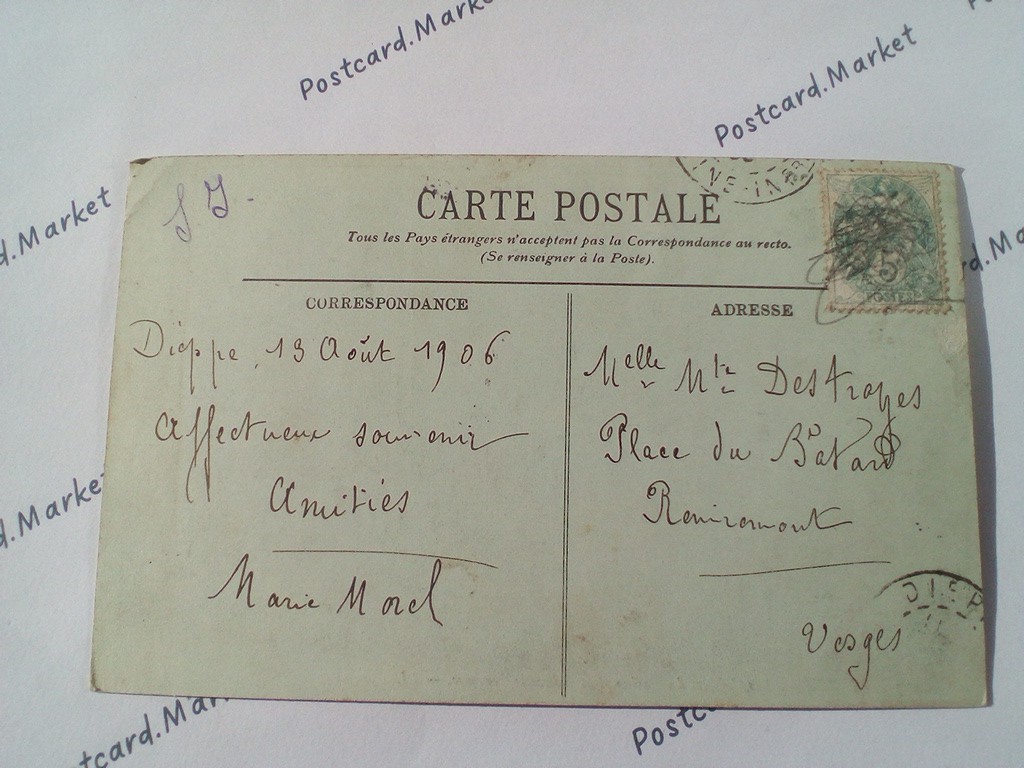 Postcard.Mark
Postcard.Market
S J -
CARTE POSTALE
Tous les Pays étrangers n'acceptent pas la Correspondance au recto.
(Se renseigner à la Poste).
5
CORRESPONDANCE
Dieppe, 13 Août 1906
Affectueux souvenir
Amitiés
Marie Morel
ADRESSE
Melle Mte Destrayes
Place du Batard
Remiremont
Vosges
DIEP
rd.Market
rd.Ma
rd.Market
tcard.Mar
Postc